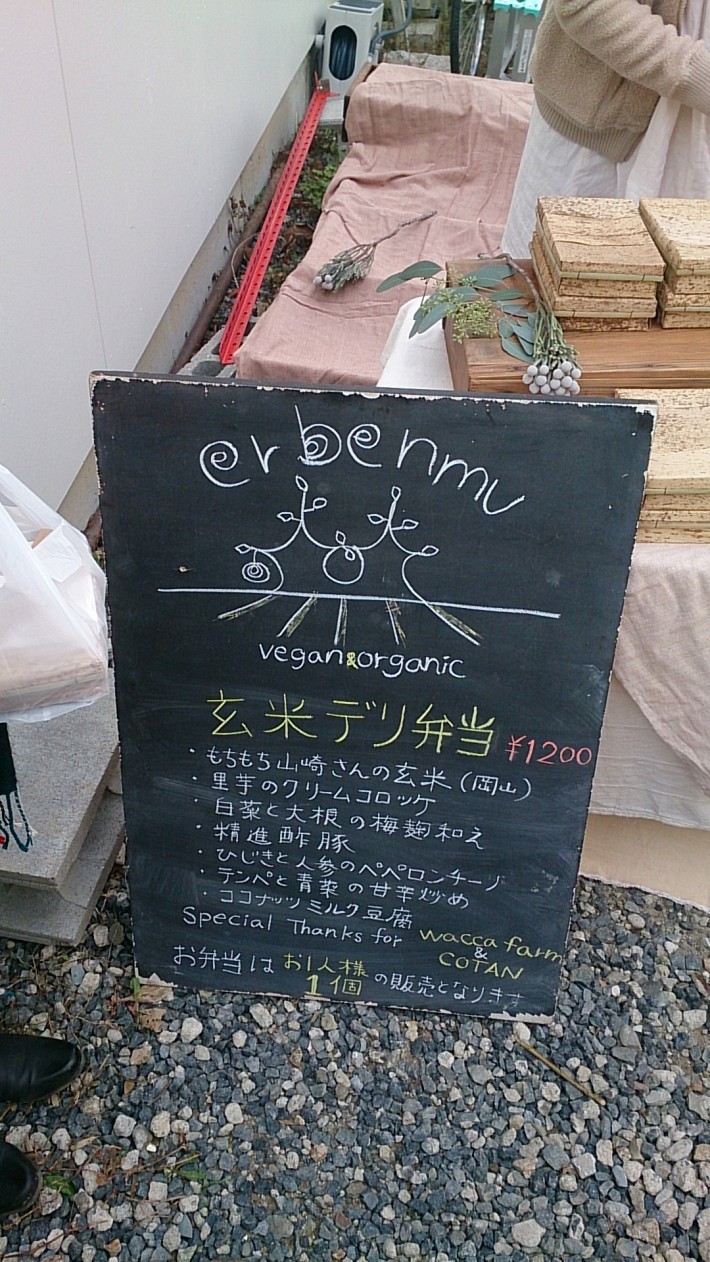 erbenmu
vegan&organic
玄米デリ弁当 ¥1200
・もちもち山崎さんの玄米(岡山)
・里芋のクリームコロッケ
・白菜と大根の梅麹和え
・精進酢豚
・ひじきと人参のペペロンチーノ
・テンペと青菜の甘辛炒め
・ココナッツミルク豆腐
Special Thanks for wacca farm
&
COTAN
お弁当はお1人様
1個の販売となります